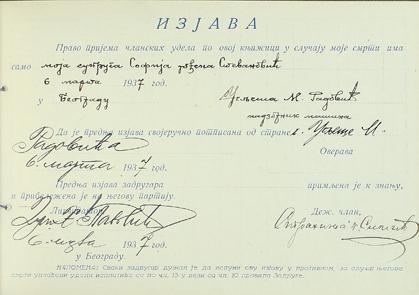 ИЗЈАВА
Право пријема чланских удела по овој књижици у случају моје смрти има
само моја супруга Софија рођена Стевановић
6 марта 1937 год.
у Београду Угљеша М. Радовић
надзорник
Да је предња изјава својеручно потписана од стране г. Угљеше М.
Радовића Оверава
6. марта 1937 год.
Предња изјава задругара примљена је к знању,
и прибележена је на његову партију.
Деж. члан,
1937 год.
у Београду.
НАПОМЕНА: Сваки задругар дужан је да испуни ову изјаву у противном, за случај његове
смрти уплаћени удели исплатиће се по чл. 13 у вези са чл. 10 правила Задруге.